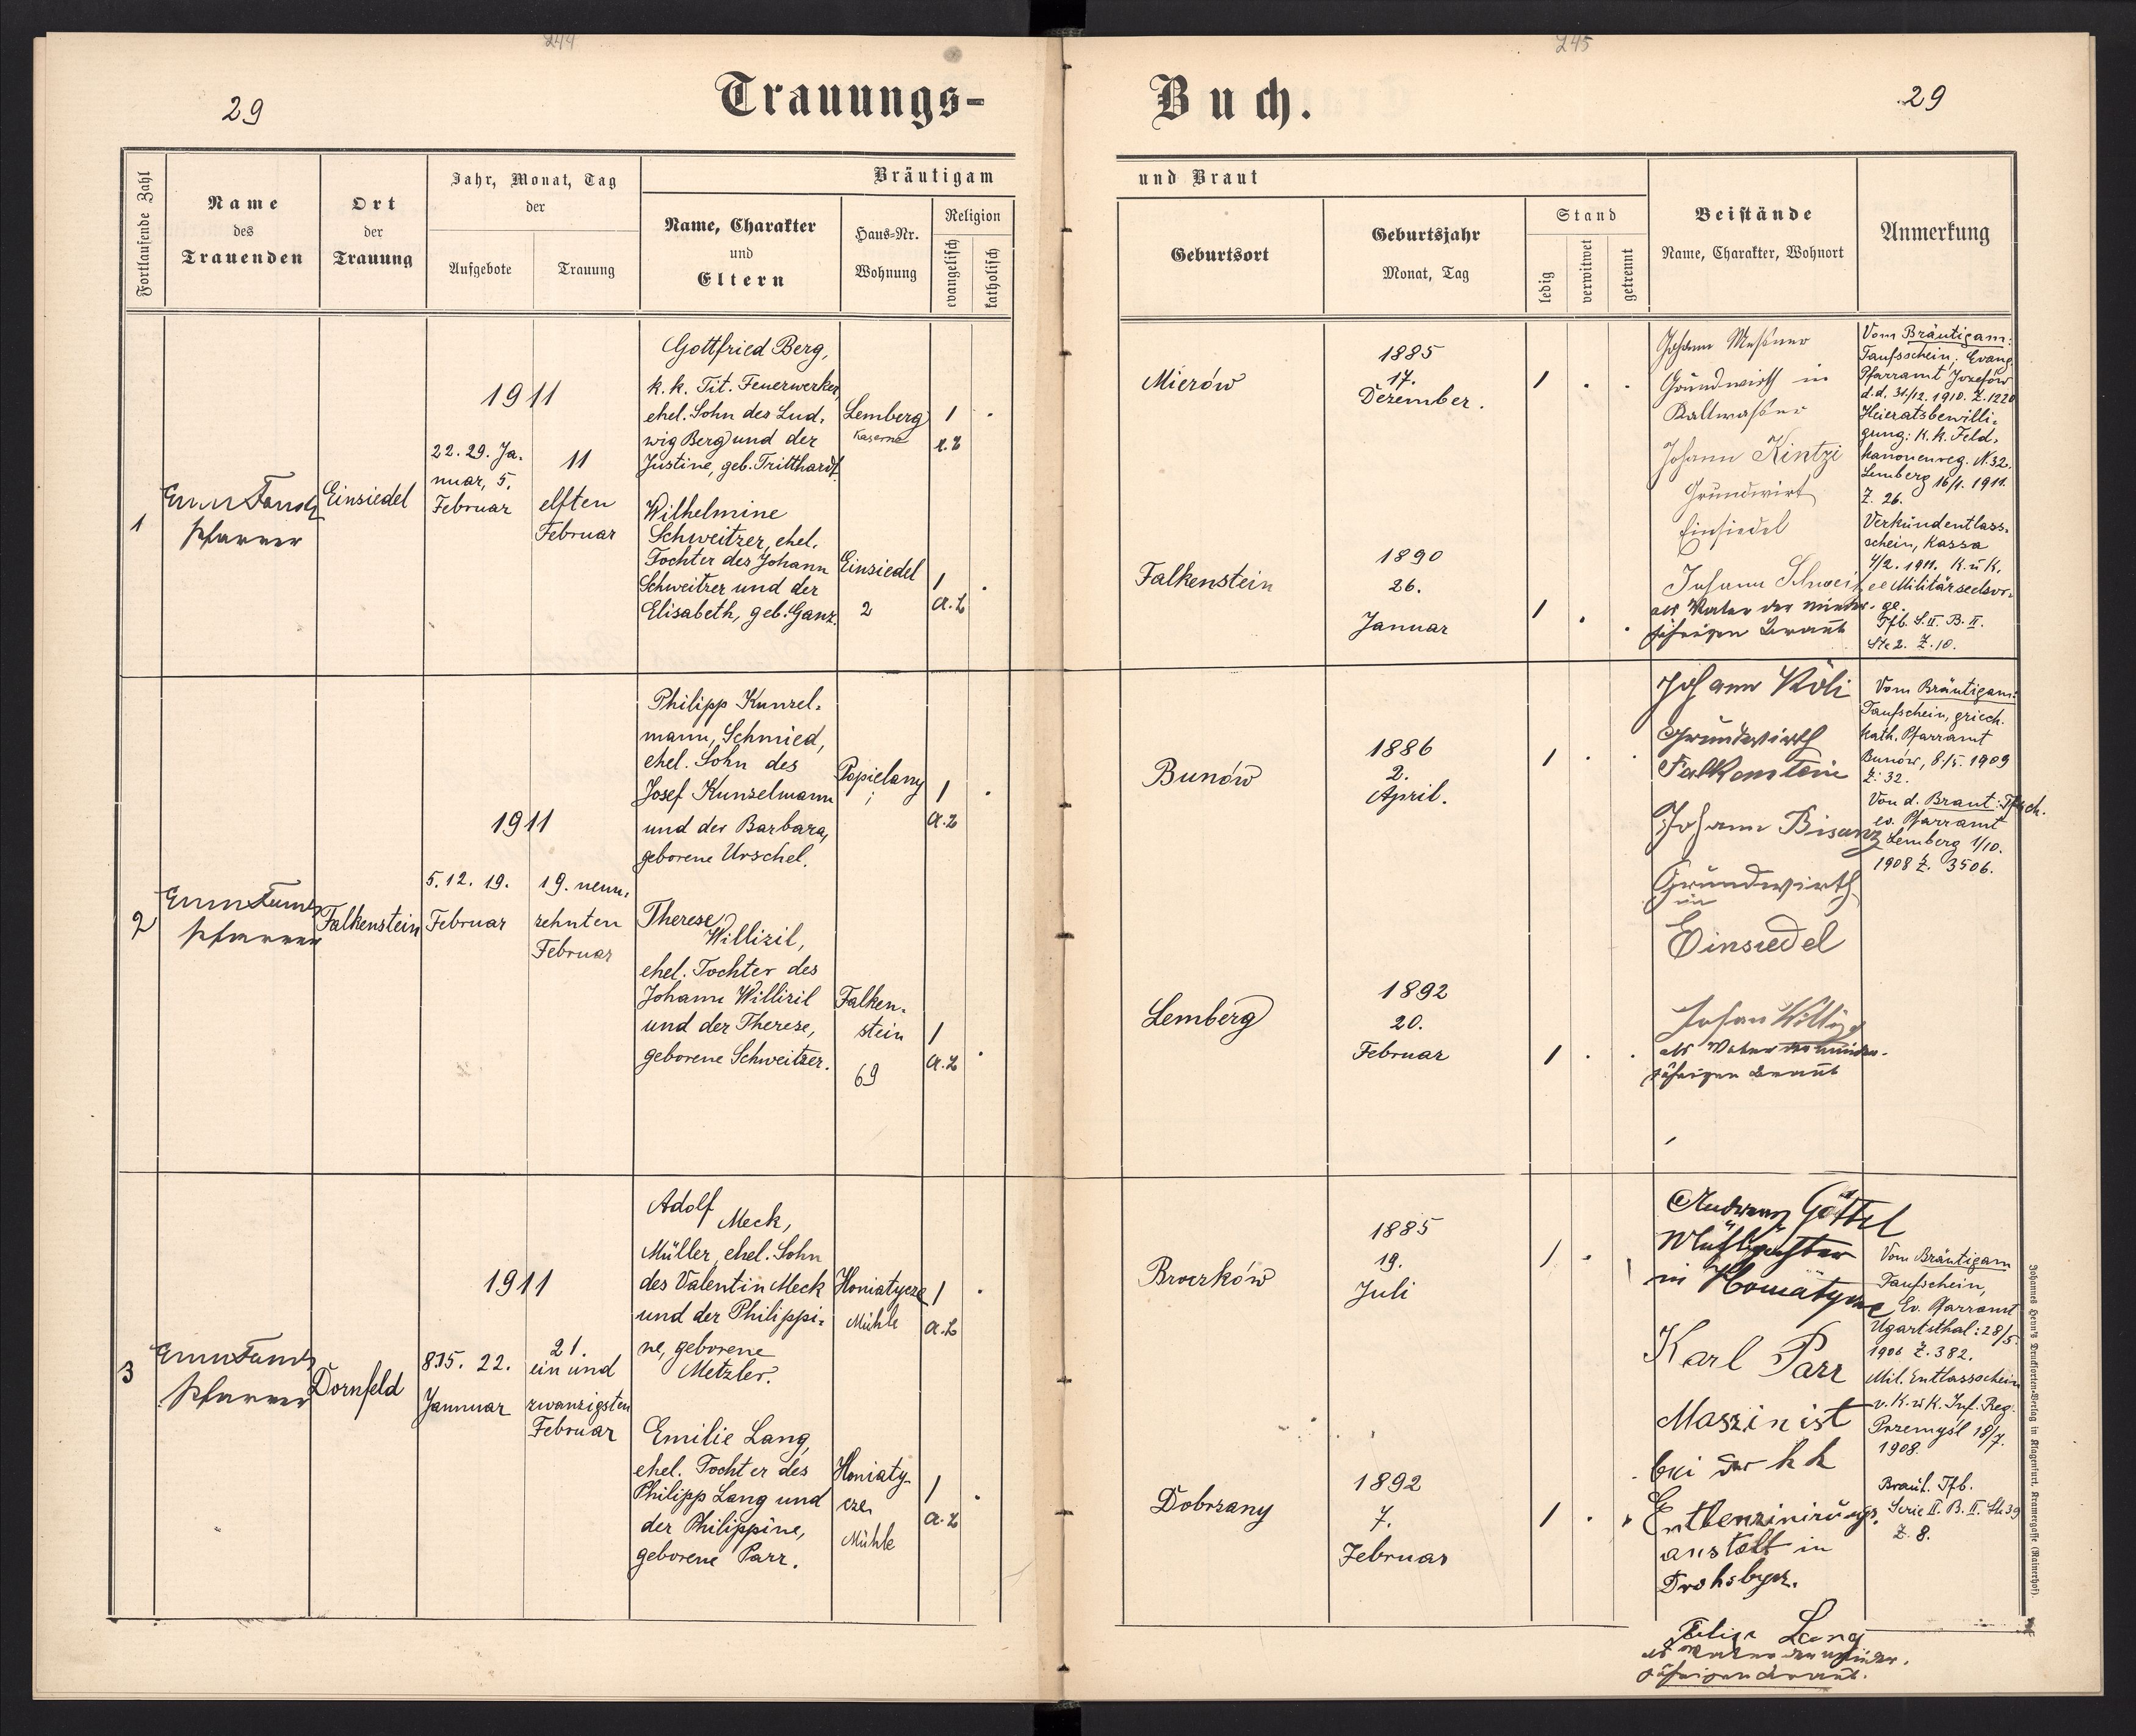 244
29
Trauungs-
Fortlaufende Zahl
Name
des
Trauenden
Ort
der
Trauung
Jahr, Monat, Tag
der
Aufgebote
Trauung
Bräutigam
Name, Charakter
und
Eltern
Haus-Nr.
Wohnung
Religion
evangelisch
katholisch
1
Pfarrer
Einsiedel
1911
22. 29. Ja-
nuar, 5.
Februar
11
elften
Februar
Gottfried Berg,
k. k. Tit. Feuerwerker,
ehel. Sohn des Lud-
wig Berg und der
Justine, geb. Tritthardt.
Lemberg
Kaserne
1
Wilhelmine
Schweitzer, ehel.
Tochter des Johann
Schweitzer und der
Elisabeth, geb. Ganz.
Einsiedel
2
1
a. L
2
Pfarrer
Falkenstein
1911
5. 12. 19.
Februar
19. neun-
zehnten
Februar
Philipp Kunzel-
mann, Schmied,
ehel. Sohn des
Josef Kunzelmann
und der Barbara,
geborene Urschel.
Popielany
1
a. L
Therese
Willizil,
ehel. Tochter des
Johann Willizil
und der Therese,
geborene Schweitzer.
Falken-
stein
69
1
a. L
3
Pfarrer
Dornfeld
1911
8. 15. 22.
Jannuar
21.
ein und
zwanzigsten
Februar
Adolf
Meck,
Müller, ehel. Sohn
des Valentin Meck
und der Philippi-
ne, geborene
Metzler.
Honiatycze
Mühle
1
a. L
Emilie Lang,
ehel. Tochter des
Philipp Lang und
der Philippine,
geborene Parr.
Honiaty-
cze
Mühle
1
a. L
245
29
Buch.
und Braut
Geburtsort
Geburtsjahr
Monat, Tag
Stand
ledig
verwitwet
getrennt
Beistände
Name, Charakter, Wohnort
Anmerkung
Mierów
1885
17.
Dezember.
1
Johann Meßner
Grundwirth in
Kaltwasser
Johann Kintzi
Grundwirt
Einsiedel
Johann Schweitzer
als Vater der minder-
jährigen Braut
Vom Bräutigam:
Taufsschein: Evang.
Pfarramt Jozefow
d.d. 31/12. 1910. Z. 1220
Heiratsbewilli-
gung: K. k. Feld-
kanonenreg. N. 32.
Lemberg 16/1. 1911.
Z. 26.
Verkündentlass-
schein, Kassa
4/2. 1911. K. u K.
Militärseelsor-
ge.
Tfb. S. II. B. II.
Ste 2. Z. 10.
Falkenstein
1890
26.
Januar
1
Bunów
1886
2.
April.
1
Johann Köli
Grundwirth
Falkenstein
Johann Bisanz
Grundwirth
in
Einsiedel
als Vater der minder-
jährigen Braut
Vom Bräutigam:
Taufschein, griech.
kath. Pfarramt
Bunów, 8./5. 1909
Z. 32.
Von d. Braut: Tfsch.
ev. Pfarramt
Lemberg 1/10.
1908 Z. 3506.
Lemberg
1892
20.
Februar
1
Broczków
1885
19.
Juli
1
Andreas Göttel
in Honiatycze
Karl Parr
Maszinist
bei der k k
Entbenzinirungs-
anstalt in
Vom Bräutigam
Taufschein,
Ev. Pfarramt
Ugartsthal: 28/5.
1906 Z. 382.
Mil. Entlassschein
v. K. u K. Inf. Reg.
Przemyśl 18/7.
1908.
Braut. Tfb.
Serie II. B. II. St. 39
Z. 8.
Dobrzany
1892
7.
Februar
1
Lang
als Vater der minder-
jährigen Braut.
Johannes Henn's Drucksorten-Verlag in Klagenfurt, Kramergasse (Rainerhof).